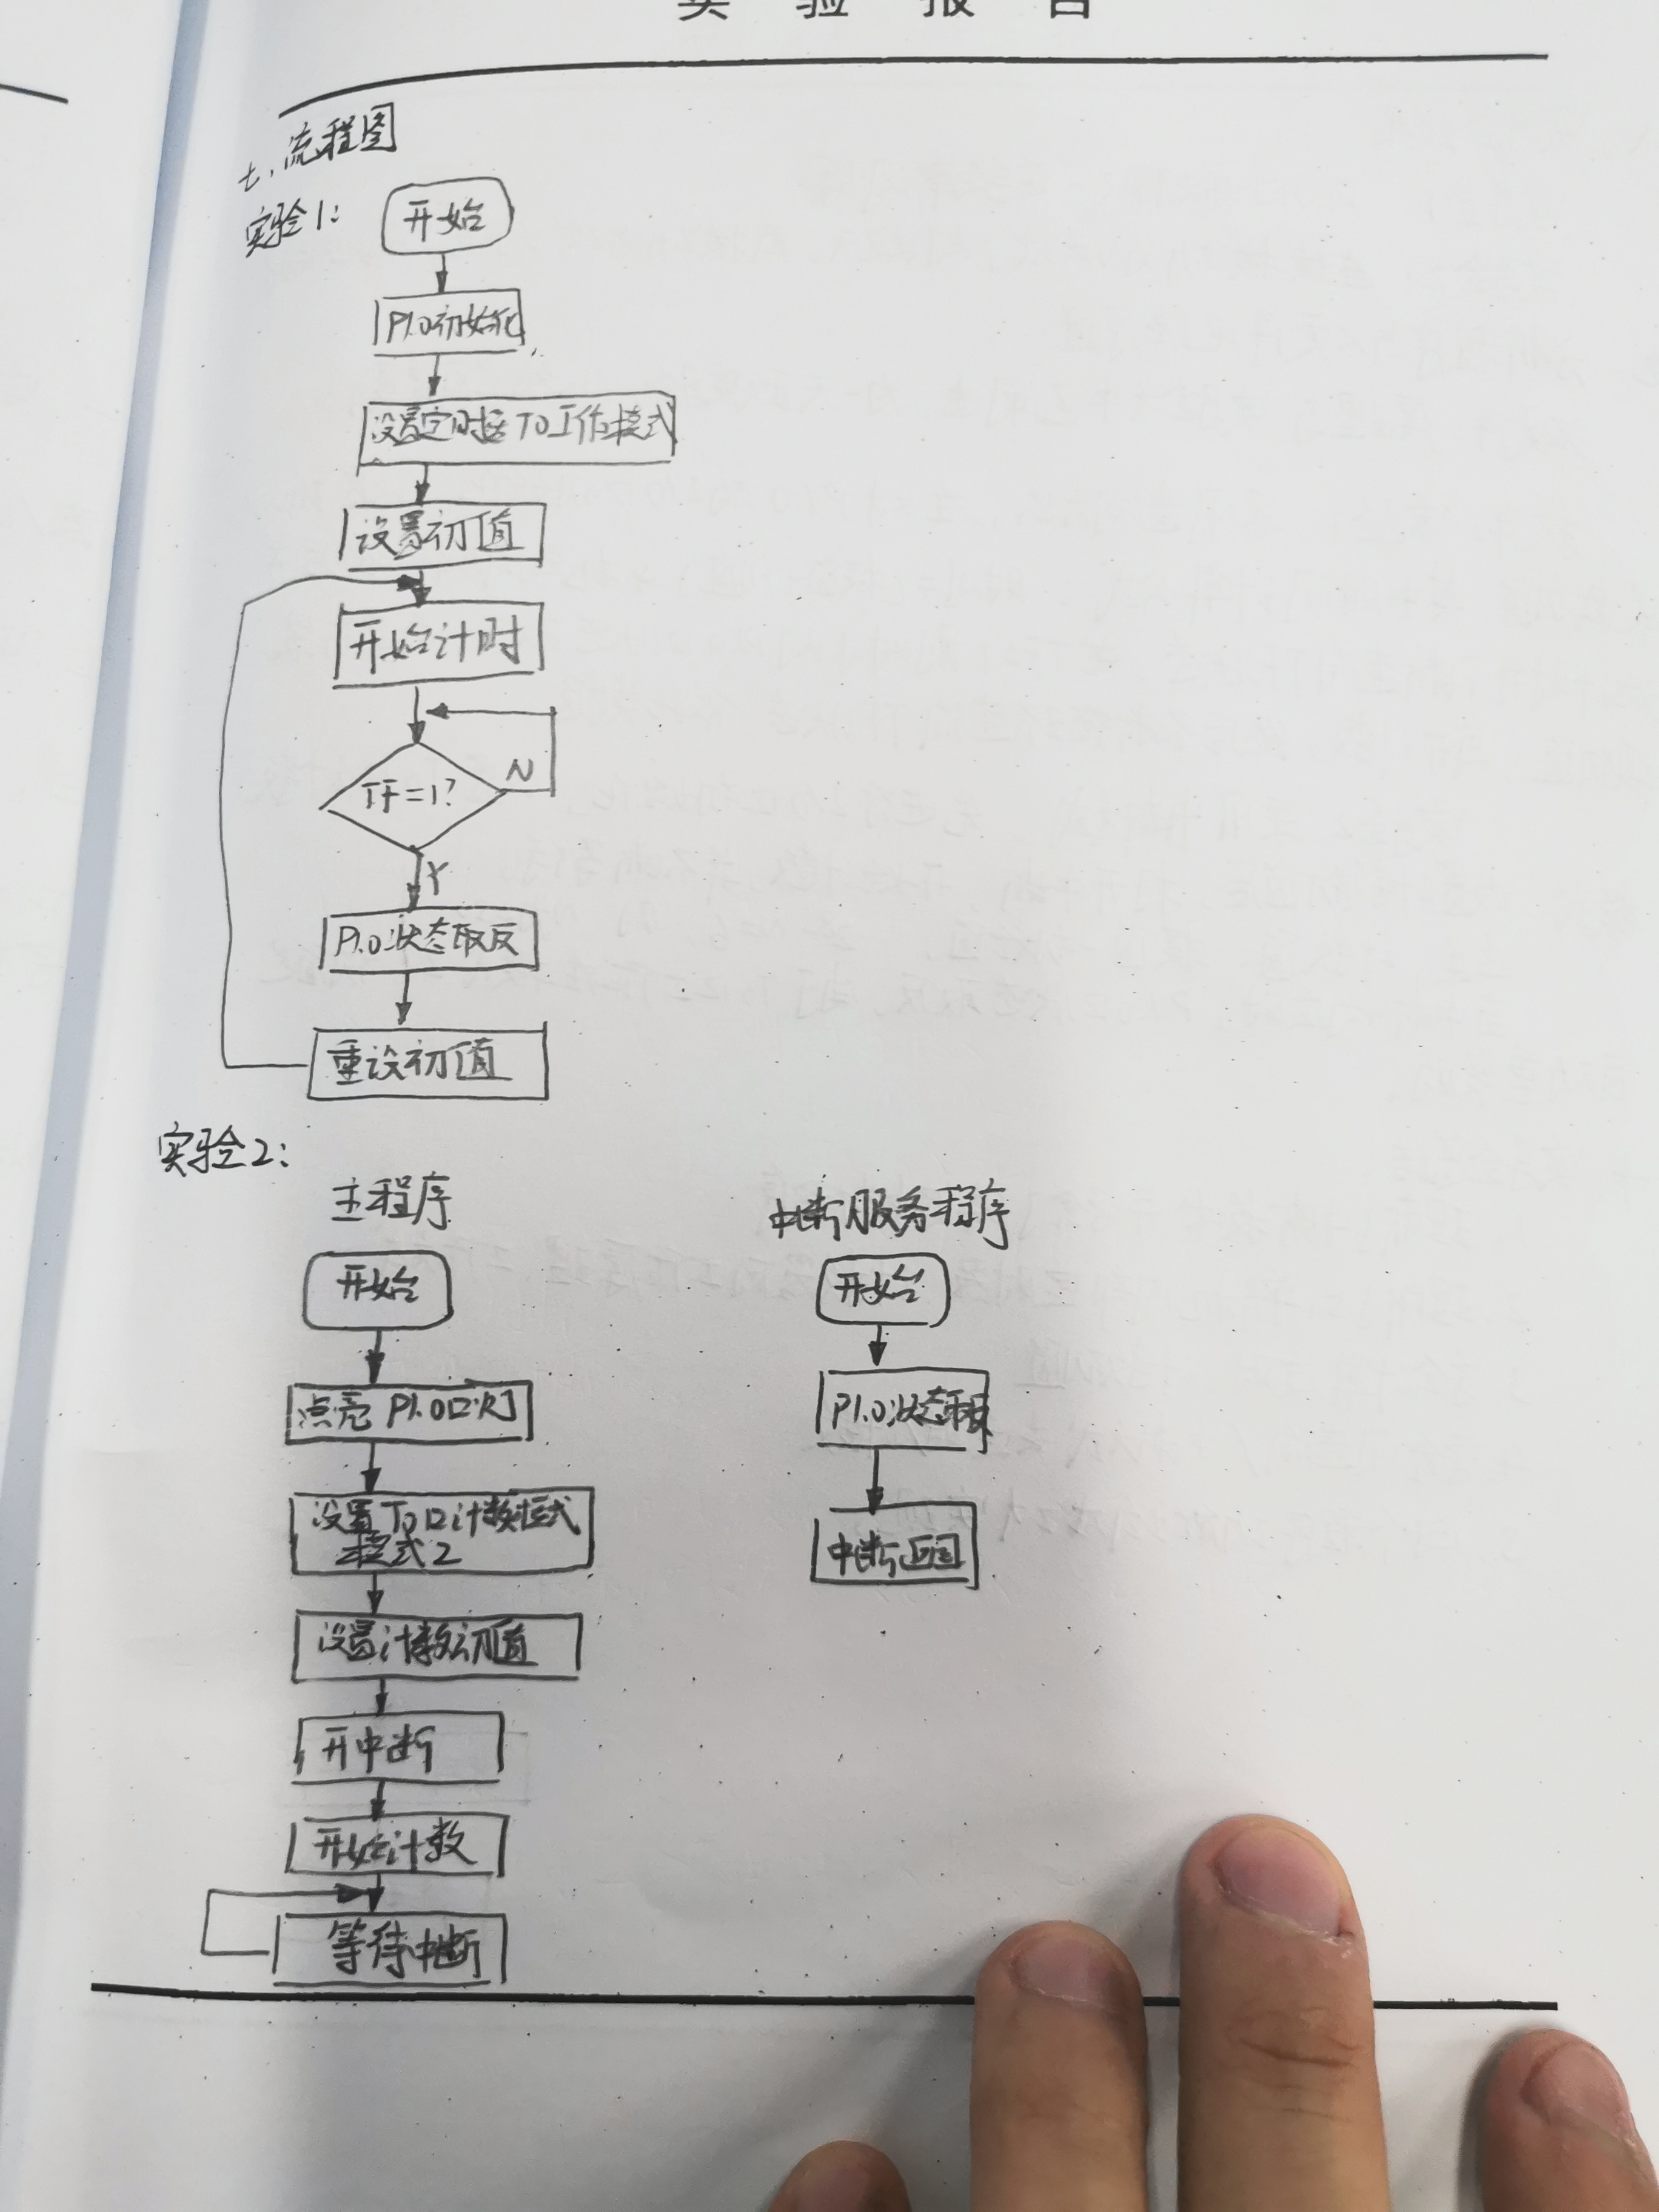 实验报告
七、流程图
实验1:
开始
P1.0初始化
设置定时器T0工作模式
设置初值
开始计时
TF=1?
N
Y
P1.0状态取反
重设初值
实验2:
主程序
开始
点亮P1.0口灯
设置T0口计数模式
模式2
设置计数初值
开中断
开始计数
等待中断
中断服务程序
开始
P1.0状态取反
中断返回